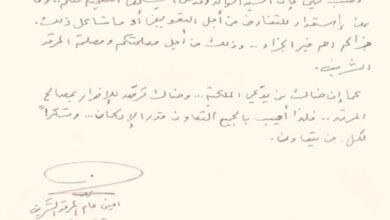 عن إستعداد للتفاوض من أجل التعويض أو ما شاكل ذلك.
فجزاكم الله خير الجزاء .. وذلك من أجل مصلحتكم ومصلحة المرقد
الشريف.
كما إن هناك من يدّعي الملكية ... وهناك ترصّد للإضرار بمصالح
المرقد .. فلذا أهيب بالجميع التعاون قدر الإمكان ... وشكراً
لكل من يتعاون.
أمين عام المرقد الشريف